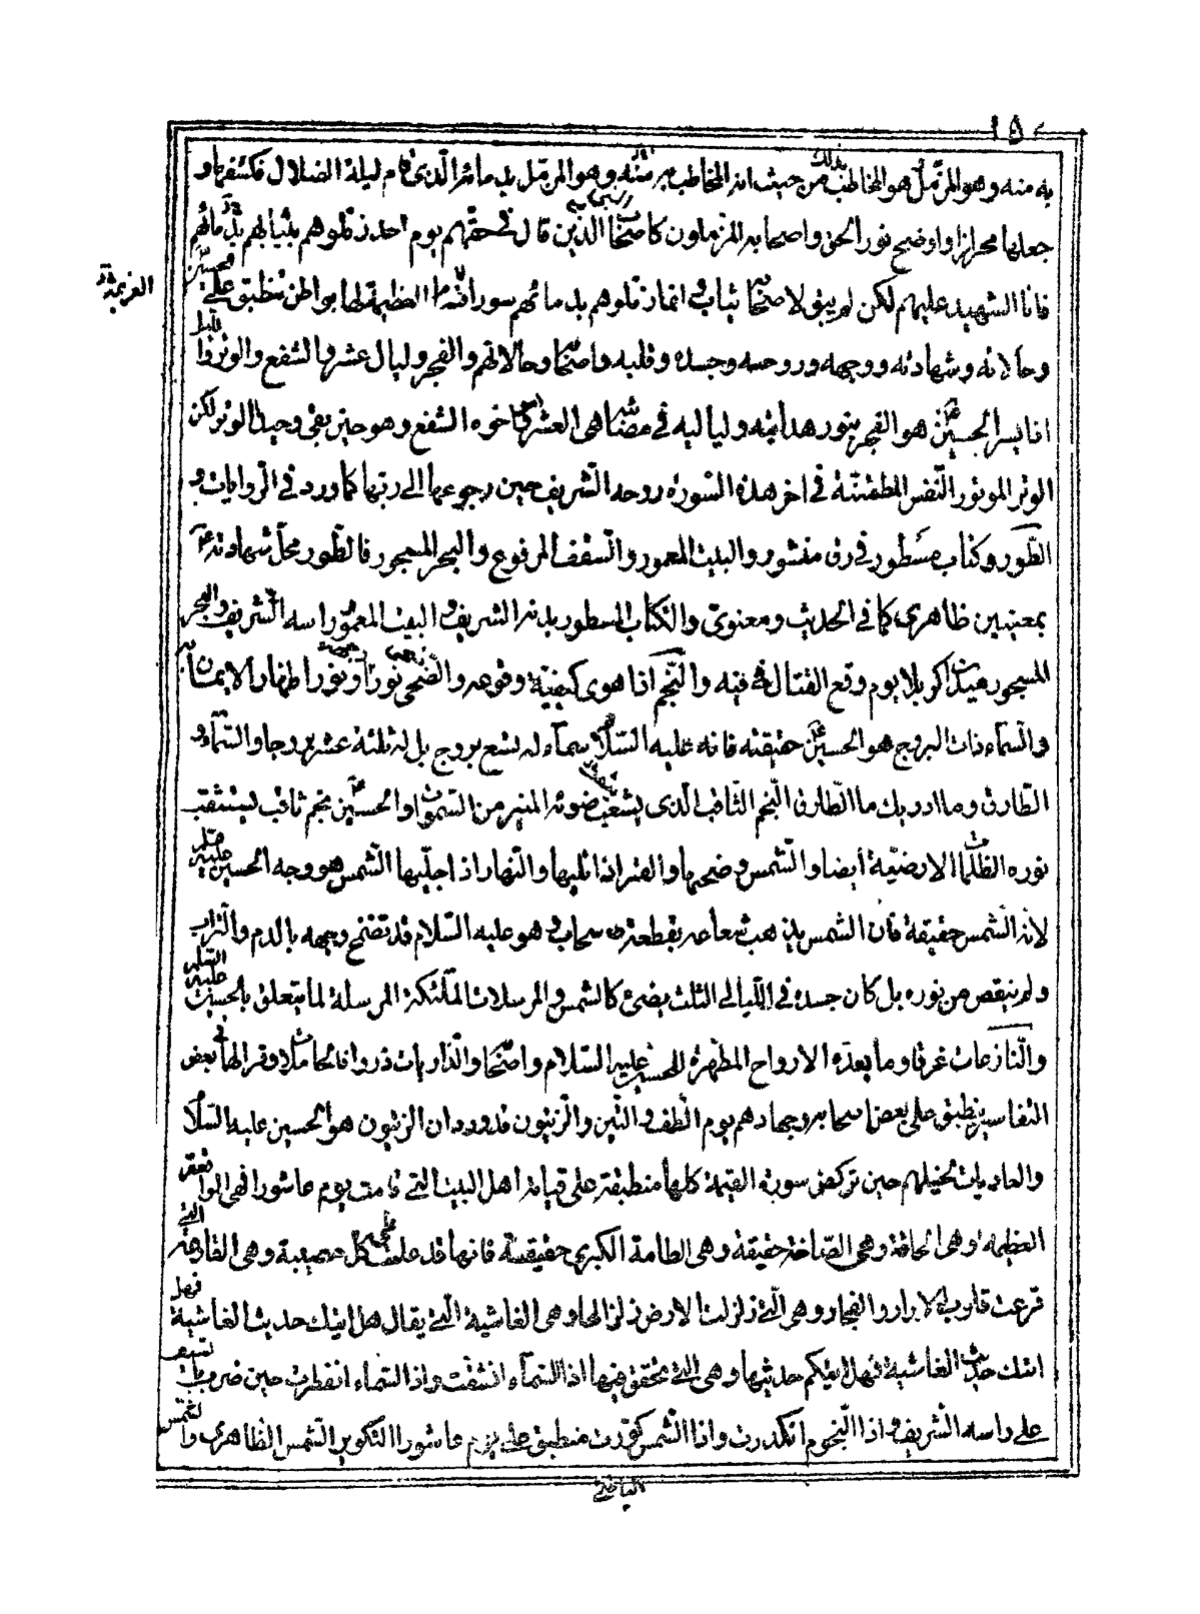 ١٥٠
به منه وهو المزمّل هو المخاطب بذلك من حيث انه المخاطب به منه وهو المزمّل بدمائه الّذى قام ليلة الضلال فكشفها و
جعلها محرابا واوضح نور الحق واصحابه المزملون كاصحاب الذين قال فى حقهم يوم احد زملوهم بثيابهم بدمائهم
فانا الشهيد عليهم لكن لم يبق لاصحابه ثياب وانما زملوهم بدمائهم سور اقسامها العظيمة لها مواطن تنطبق على الحسين
العزيمة
وحالاته وشهادته ووجهه وروحه وجسده وقلبه واصحابه وحالاتهم والفجر وليال عشر والشفع والوتر والليل
اذا يسر الحسين هو الفجر بنور هدايته ولياليه فى مصابها هى العشر واخوه الشفع وهو حين بقى وحيدا الوتر لكن
الوتر الموتور النّفس المطمئنّة فى اخر هذه السّوره روحه الشّريف حين رجوعها الى ربّها كما ورد فى الرّوايات و
الطّور وكتاب مسطور فى رق منشور والبيت المعمور والسّقف المرفوع والبحر المسجور فالطّور محلّ شهادته
بمعنيين ظاهرى كما فى الحديث ومعنوى والكتاب المسطور بدنه الشريف والبيت المعمور راسه الشّريف والبحر
المسجور ميدان كربلا يوم وقع القتال فيه والنّجم اذا هوى كيفيّة وقوعه والضّحى نور اظهار الايمان
والسّماء ذات البروج هو الحسين حقيقته فانه عليه السّلام سماء له تسع بروج بل له ثلثة عشر بروجا والسّماء و
الطّارق وما ادريك ما الطّارق النّجم الثّاقب الّذى يثقب ضوئه المنير من السّموات والحسين نجم ثاقب يستثقب
نوره الظّلمات الارضيّة أيضا والشّمس وضحيها والقمر اذا تليها والنّهار اذا جلّيها الشّمس هو وجه الحسين عليه السلام
لانه الشّمس حقيقة فان الشمس يذهب شعاعه بقطعة من سحاب وهو عليه السّلام قد تضمّخ وجهه بالدم والتّراب
ولم ينقص من نوره بل كان جسده فى اللّيالى الثلث يضئ كالشمس والمرسلات الملٓئكة المرسلة لما يتعلق بالحسين عليه السلام
والنّازعات غرقا وما بعده الارواح المطهّرة للحسين عليه السّلام واصحابه والذّاريات ذروا فالحاملات وقرا الها فى بعض
التفاسير ينطبق على بعض اصحابه وجهادهم يوم الطّف والتّين والزّيتون قد ورد ان الزيتون هو الحسين عليه السّلام
والعاديات بخيلهم حين تركض سورة القيمة كلها منطبقة على قيامة اهل البيت الّتى قامت يوم عاشورا فهى الواقعة
العظيمه وهى الحاقة وهى الصّاخة حقيقة وهى الطامة الكبرى حقيقة فانها قد علت على كل مصيبة وهى القارعة الّتى
قرعت قلوب الابرار والفجار وهى الّتى زلزلت الارض زلزالها وهى الغاشية الّتى يقال هل اتيك حديث الغاشية فهل
اتتك حديث الغاشية فهل اتيكم حديثها وهى الّتى تحقق فيها اذا السّماء انشقّت واذا السّماء انفطرت حين ضرب بالسّيف
على راسه الشّريف واذا النّجوم انكدرت واذا الشّمس كوّرت منطبق على يوم عاشورا التكوير الشّمس الظّاهرى والشمس
الباطنى